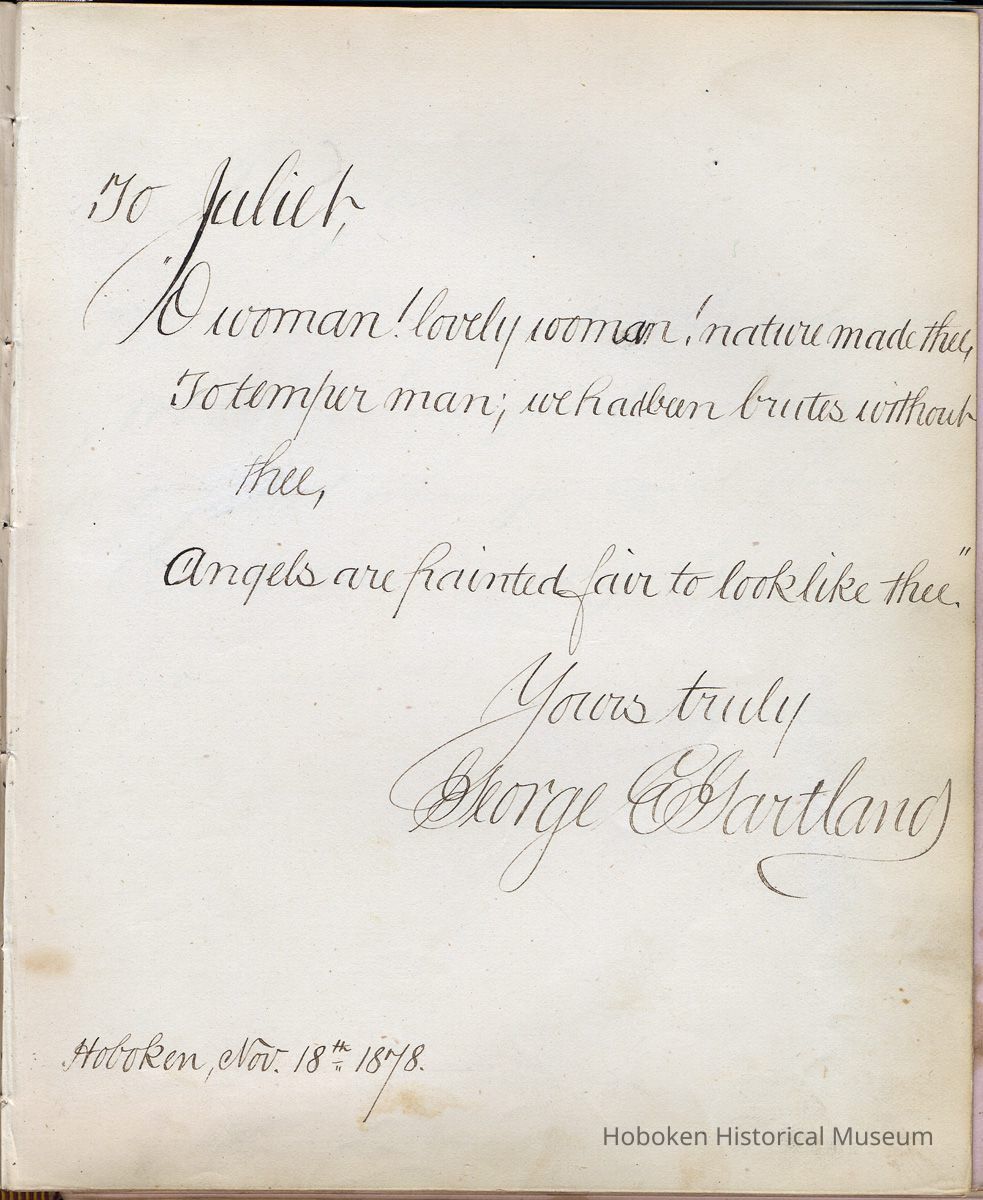 To Juliet,
"O woman! lovely woman! nature made thee,
To temper man; we had been brutes without
thee,
Angels are painted fair to look like thee."
Yours truly
George E Gartland
Hoboken, Nov. 18th 1878.
Hoboken Historical Museum